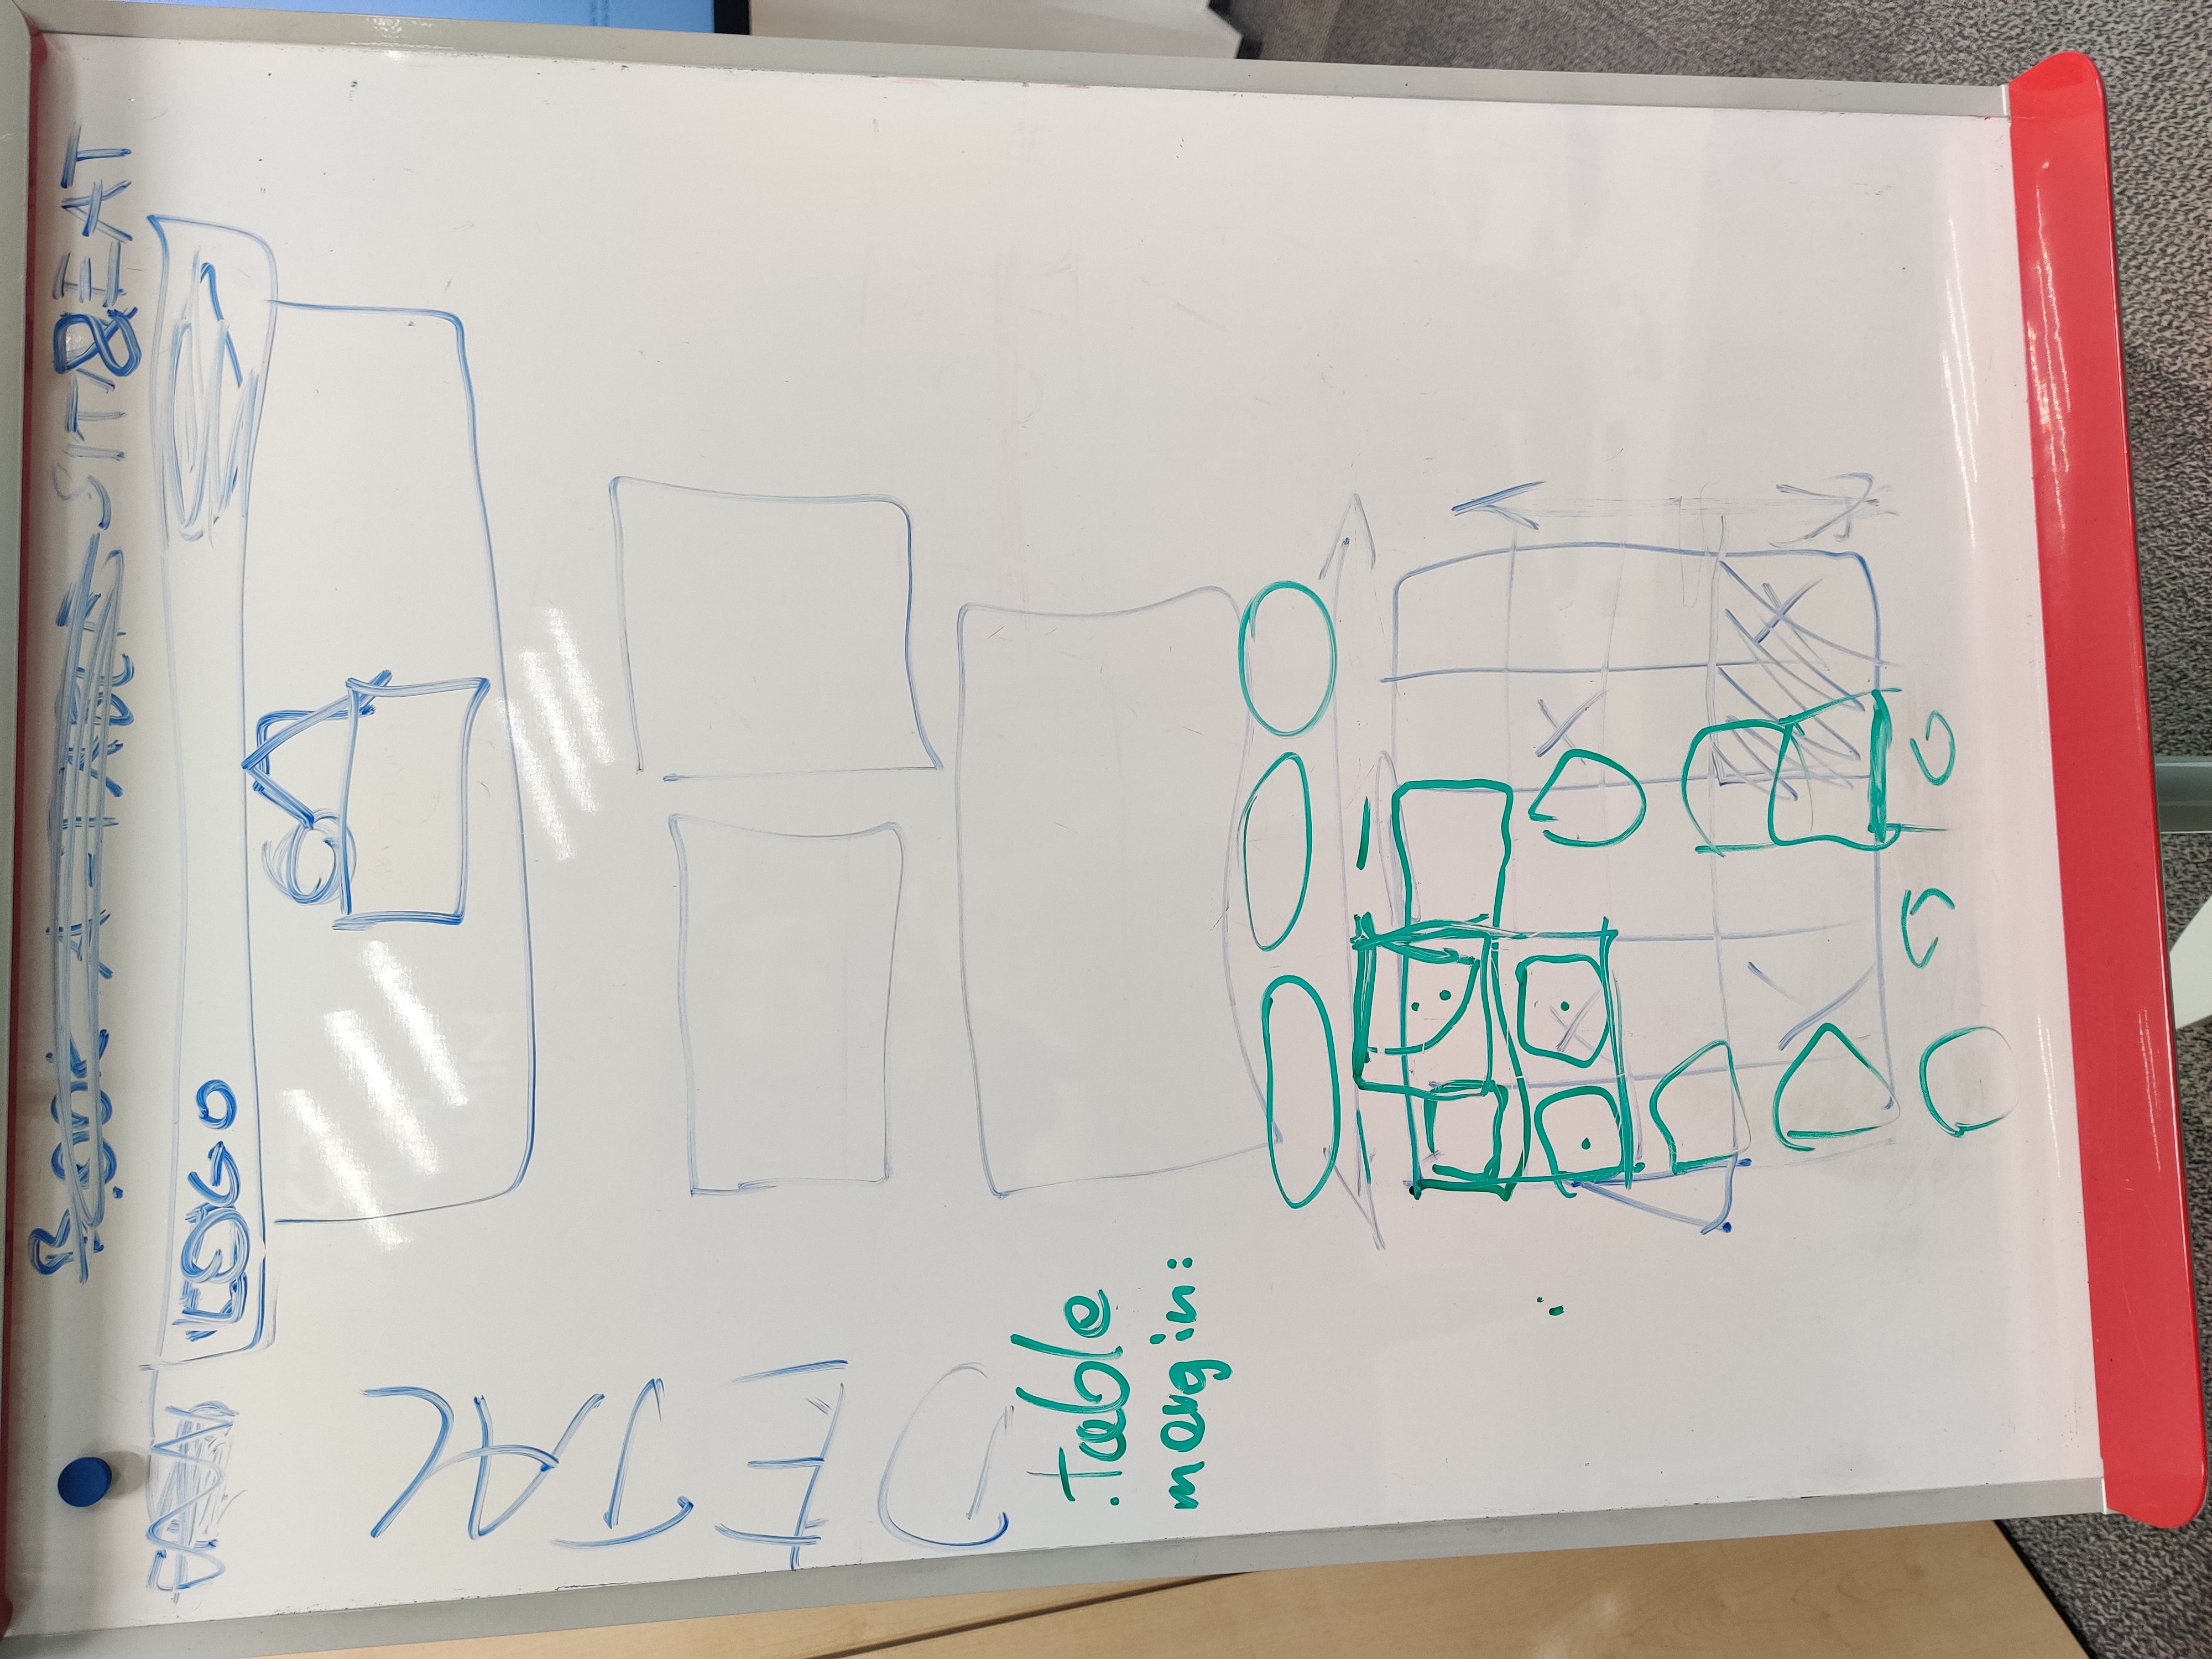 BOOK-A-TABLE SIT&EAT
LOGO
DETAL
.table
margin: